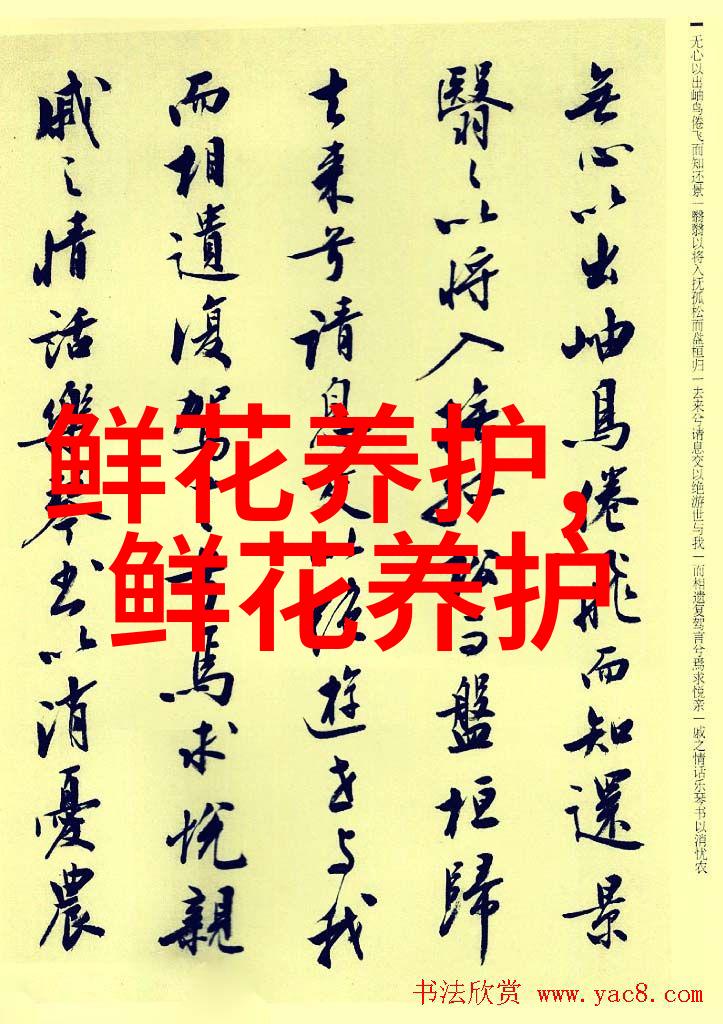 鲜花养护,
鲜花养护
無心以出岫鳥倦飛而知還景
翳々以将入撫孤松而盤桓歸
去来兮請息交以絶遊世与我
而相遺復駕言兮焉求悦親
戚之情話樂琴書以消憂農
无心以出岫鸟倦飞而知还景一翳翳以将入抚孤松而盘桓归一去来兮请息交以绝游世与我一而相遗复驾言兮焉求悦亲一戚之情话乐琴书以消忧农
书法欣赏 www.yac8.com